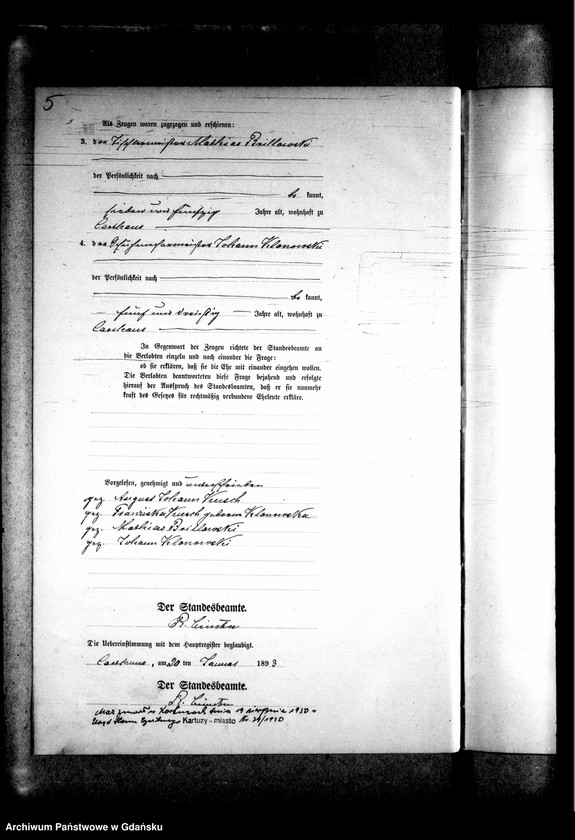 5
Als Zeugen waren zugezogen und erschienen:
3. der Tischlermeister Mathias Brillowski
der Persönlichkeit nach
be kannt,
sieben und fünfzig Jahre alt, wohnhaft zu
Carthaus
4. der Schuhmachermeister Johann Klonowski
der Persönlichkeit nach
be kannt,
fünf und dreißig Jahre alt, wohnhaft zu
Carthaus
In Gegenwart der Zeugen richtete der Standesbeamte an
die Verlobten einzeln und nach einander die Frage:
ob sie erklären, daß sie die Ehe mit einander eingehen wollen.
Die Verlobten beantworteten diese Frage bejahend und erfolgte
hierauf der Ausspruch des Standesbeamten, daß er sie nunmehr
kraft des Gesetzes für rechtmäßig verbundene Eheleute erkläre.
Vorgelesen, genehmigt und unterschrieben
gez. August Johann
gez. Franziska geborene Klonowska
gez. Mathias Brillowski
gez. Johann Klonowski
Der Standesbeamte.
Die Uebereinstimmung mit dem Hauptregister beglaubigt.
Carthaus, am 20 ten Januar 1893
Der Standesbeamte.
Mąż zmarł w dnia 19 sierpnia 1950 r.
Urząd Stanu Cywilnego Kartuzy - miasto Nr. /1950
Archiwum Państwowe w Gdańsku